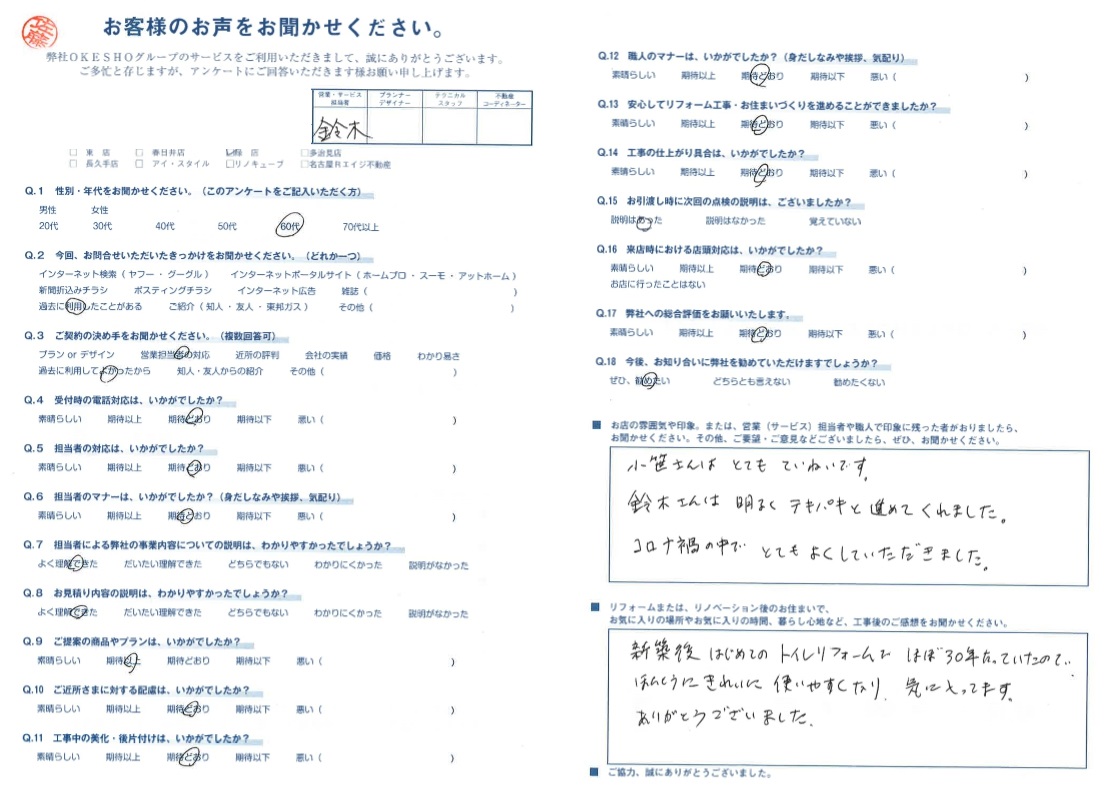 佐藤
お客様のお声をお聞かせください。
弊社OKESHOグループのサービスをご利用いただきまして、誠にありがとうございます。
ご多忙と存じますが、アンケートにご回答いただきます様お願い申し上げます。
営業・サービス担当者 プランナーデザイナー テクニカルスタッフ 不動産コーディネーター
鈴木
□ 東 店 □ 春日井店 店 □ 多治見店
□ 長久手店 □ アイ・スタイル □ リノキューブ □ 名古屋Rエイジ不動産
Q.1 性別・年代をお聞かせください。（このアンケートをご記入いただく方）
男性 女性
20代 30代 40代 50代 60代 70代以上
Q.2 今回、お問合せいただいたきっかけをお聞かせください。（どれか一つ）
インターネット検索（ ヤフー ・ グーグル ） インターネットポータルサイト（ ホームプロ ・ スーモ ・ アットホーム ）
新聞折込みチラシ ポスティングチラシ インターネット広告 雑誌（ ）
過去に利用したことがある ご紹介（ 知人 ・ 友人 ・ 東邦ガス ） その他（ ）
Q.3 ご契約の決め手をお聞かせください。（複数回答可）
プラン or デザイン 営業担当者の対応 近所の評判 会社の実績 価格 わかり易さ
過去に利用してよかったから 知人・友人からの紹介 その他（ ）
Q.4 受付時の電話対応は、いかがでしたか？
素晴らしい 期待以上 期待どおり 期待以下 悪い（ ）
Q.5 担当者の対応は、いかがでしたか？
素晴らしい 期待以上 期待どおり 期待以下 悪い（ ）
Q.6 担当者のマナーは、いかがでしたか？（身だしなみや挨拶、気配り）
素晴らしい 期待以上 期待どおり 期待以下 悪い（ ）
Q.7 担当者による弊社の事業内容についての説明は、わかりやすかったでしょうか？
よく理解できた だいたい理解できた どちらでもない わかりにくかった 説明がなかった
Q.8 お見積り内容の説明は、わかりやすかったでしょうか？
よく理解できた だいたい理解できた どちらでもない わかりにくかった 説明がなかった
Q.9 ご提案の商品やプランは、いかがでしたか？
素晴らしい 期待以上 期待どおり 期待以下 悪い（ ）
Q.10 ご近所さまに対する配慮は、いかがでしたか？
素晴らしい 期待以上 期待どおり 期待以下 悪い（ ）
Q.11 工事中の美化・後片付けは、いかがでしたか？
素晴らしい 期待以上 期待どおり 期待以下 悪い（ ）
Q.12 職人のマナーは、いかがでしたか？（身だしなみや挨拶、気配り）
素晴らしい 期待以上 期待どおり 期待以下 悪い（ ）
Q.13 安心してリフォーム工事・お住まいづくりを進めることができましたか？
素晴らしい 期待以上 期待どおり 期待以下 悪い（ ）
Q.14 工事の仕上がり具合は、いかがでしたか？
素晴らしい 期待以上 期待どおり 期待以下 悪い（ ）
Q.15 お引渡し時に次回の点検の説明は、ございましたか？
説明はあった 説明はなかった 覚えていない
Q.16 来店時における店頭対応は、いかがでしたか？
素晴らしい 期待以上 期待どおり 期待以下 悪い（ ）
お店に行ったことはない
Q.17 弊社への総合評価をお願いいたします。
素晴らしい 期待以上 期待どおり 期待以下 悪い（ ）
Q.18 今後、お知り合いに弊社を勧めていただけますでしょうか？
ぜひ、勧めたい どちらとも言えない 勧めたくない
■ お店の雰囲気や印象。または、営業（サービス）担当者や職人で印象に残った者がおりましたら、
お聞かせください。その他、ご要望・ご意見などございましたら、ぜひ、お聞かせください。
小笹さんは とても ていねいです。
鈴木さんは 明るく テキパキと 進めてくれました。
コロナ禍の中で とてもよくしていただきました。
■ リフォームまたは、リノベーション後のお住まいで、
お気に入りの場所やお気に入りの時間、暮らし心地など、工事後のご感想をお聞かせください。
新築後 はじめての トイレリフォームで ほぼ30年たっていたので、
ほんとうにきれいに 使いやすくなり、気に入ってます。
ありがとうございました。
■ ご協力、誠にありがとうございました。